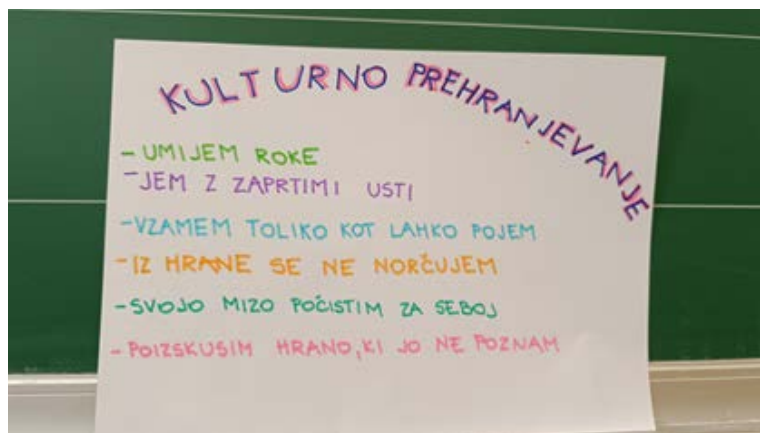 KULTURNO PREHRANJEVANJE
- UMIJEM ROKE
- JEM Z ZAPRTIMI USTI
- VZAMEM TOLIKO KOT LAHKO POJEM
- IZ HRANE SE NE NORČUJEM
- SVOJO MIZO POČISTIM ZA SEBOJ
- POIZSKUSIM HRANO, KI JO NE POZNAM